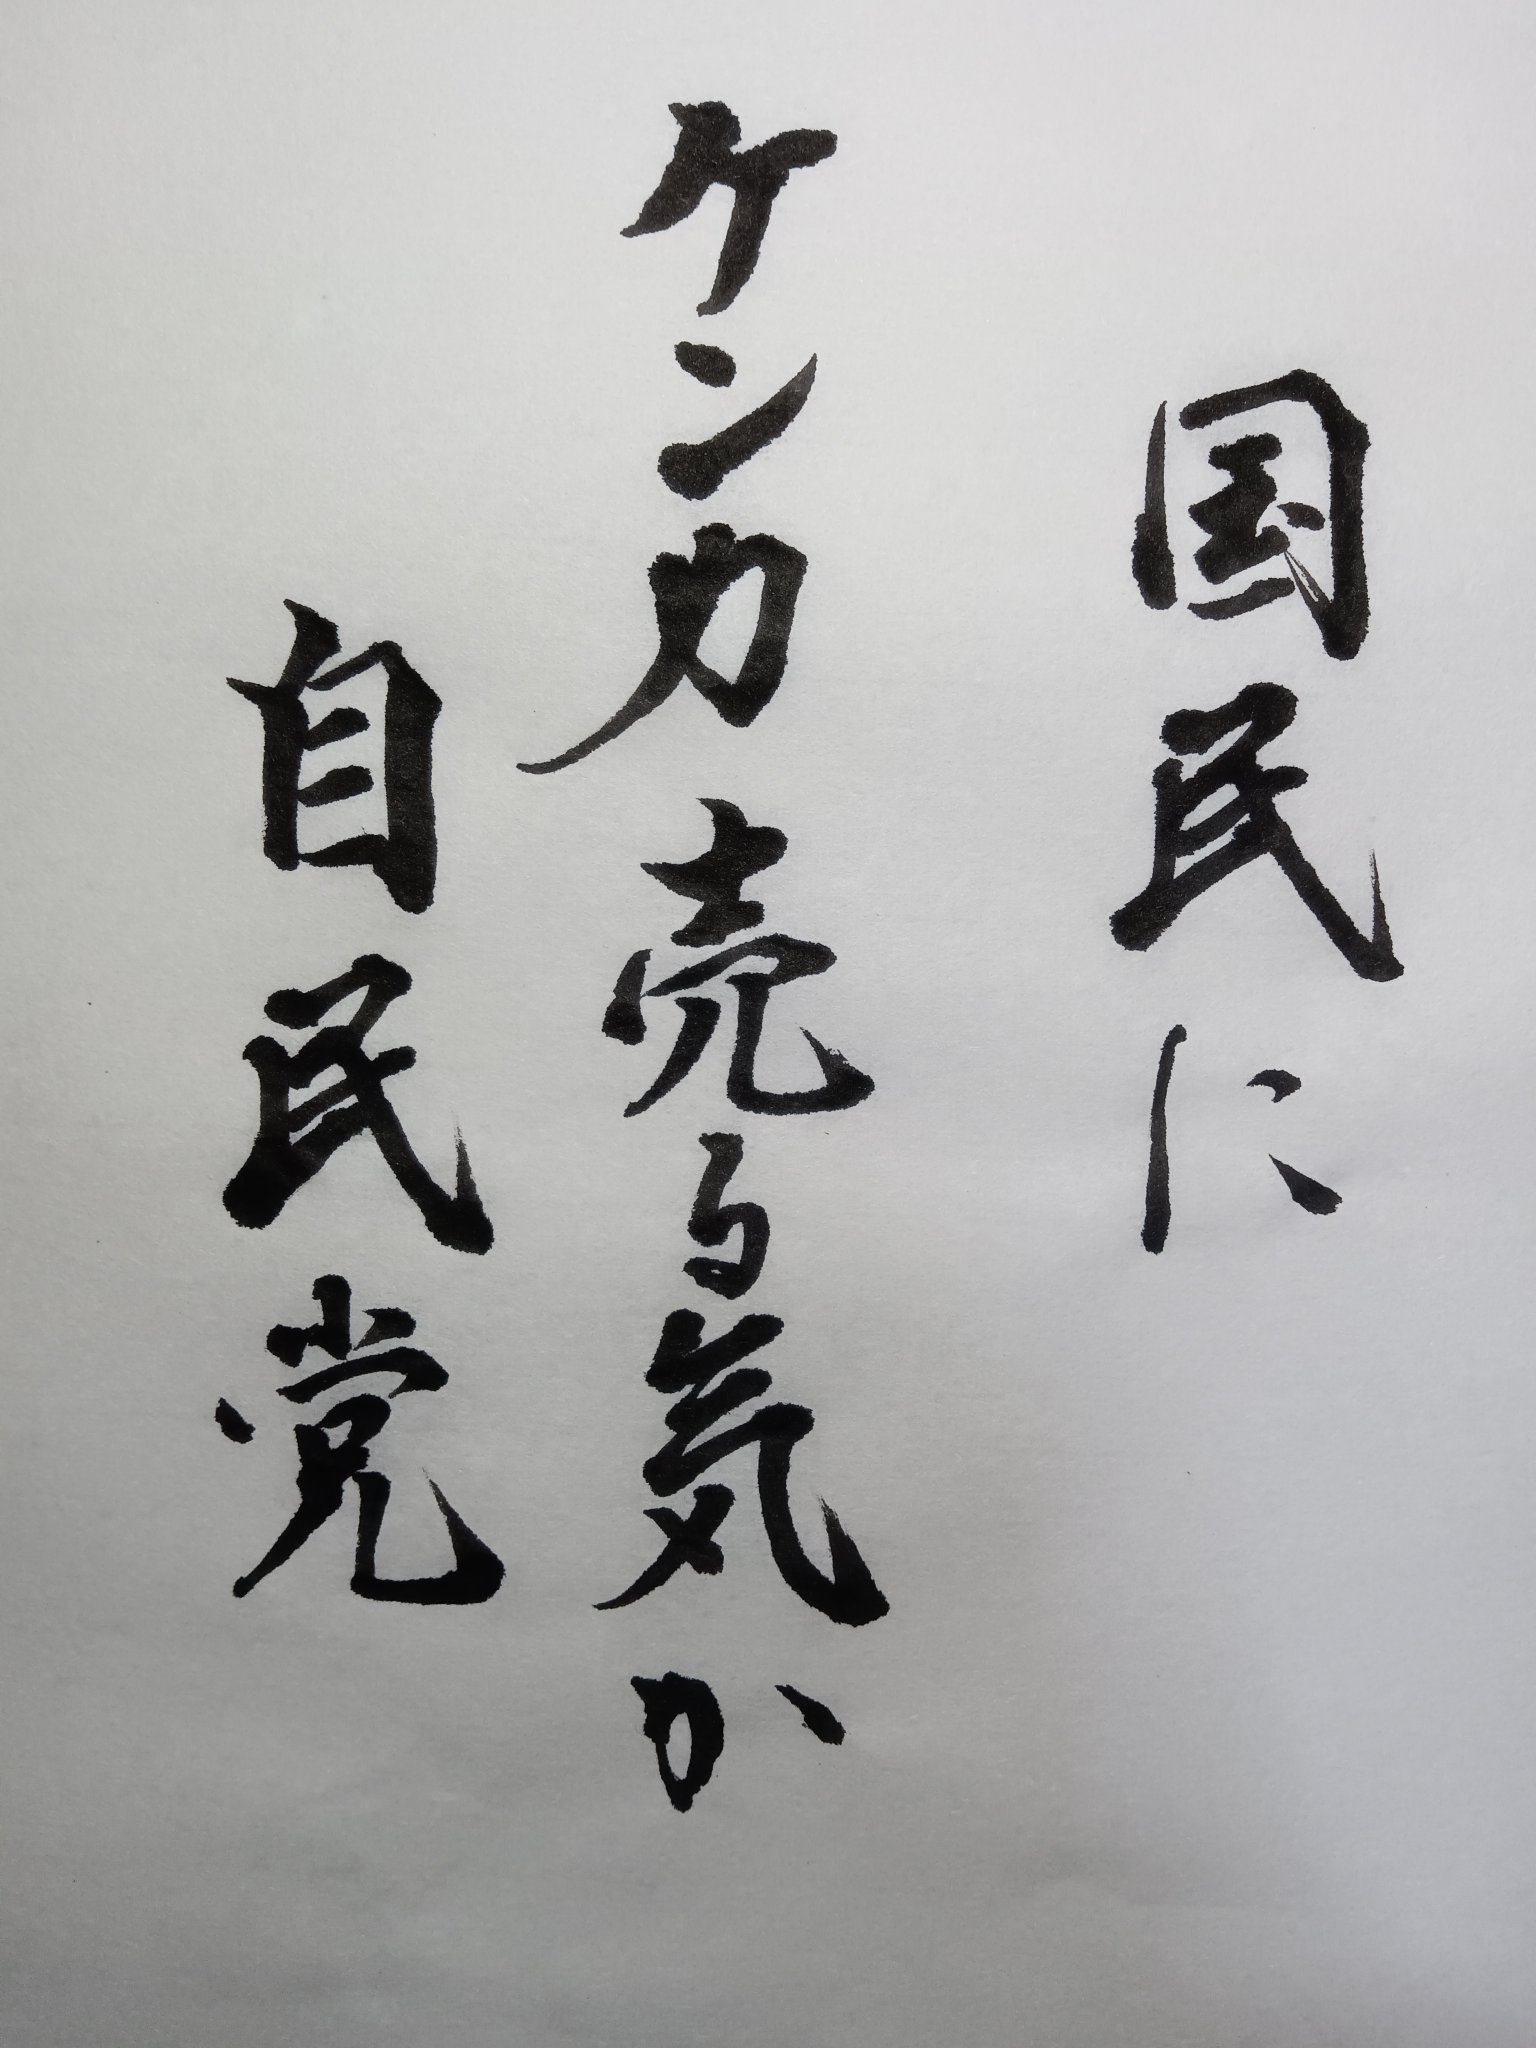 国民に
ケンカ売る気か
自民党